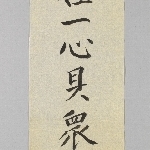 一心具衆